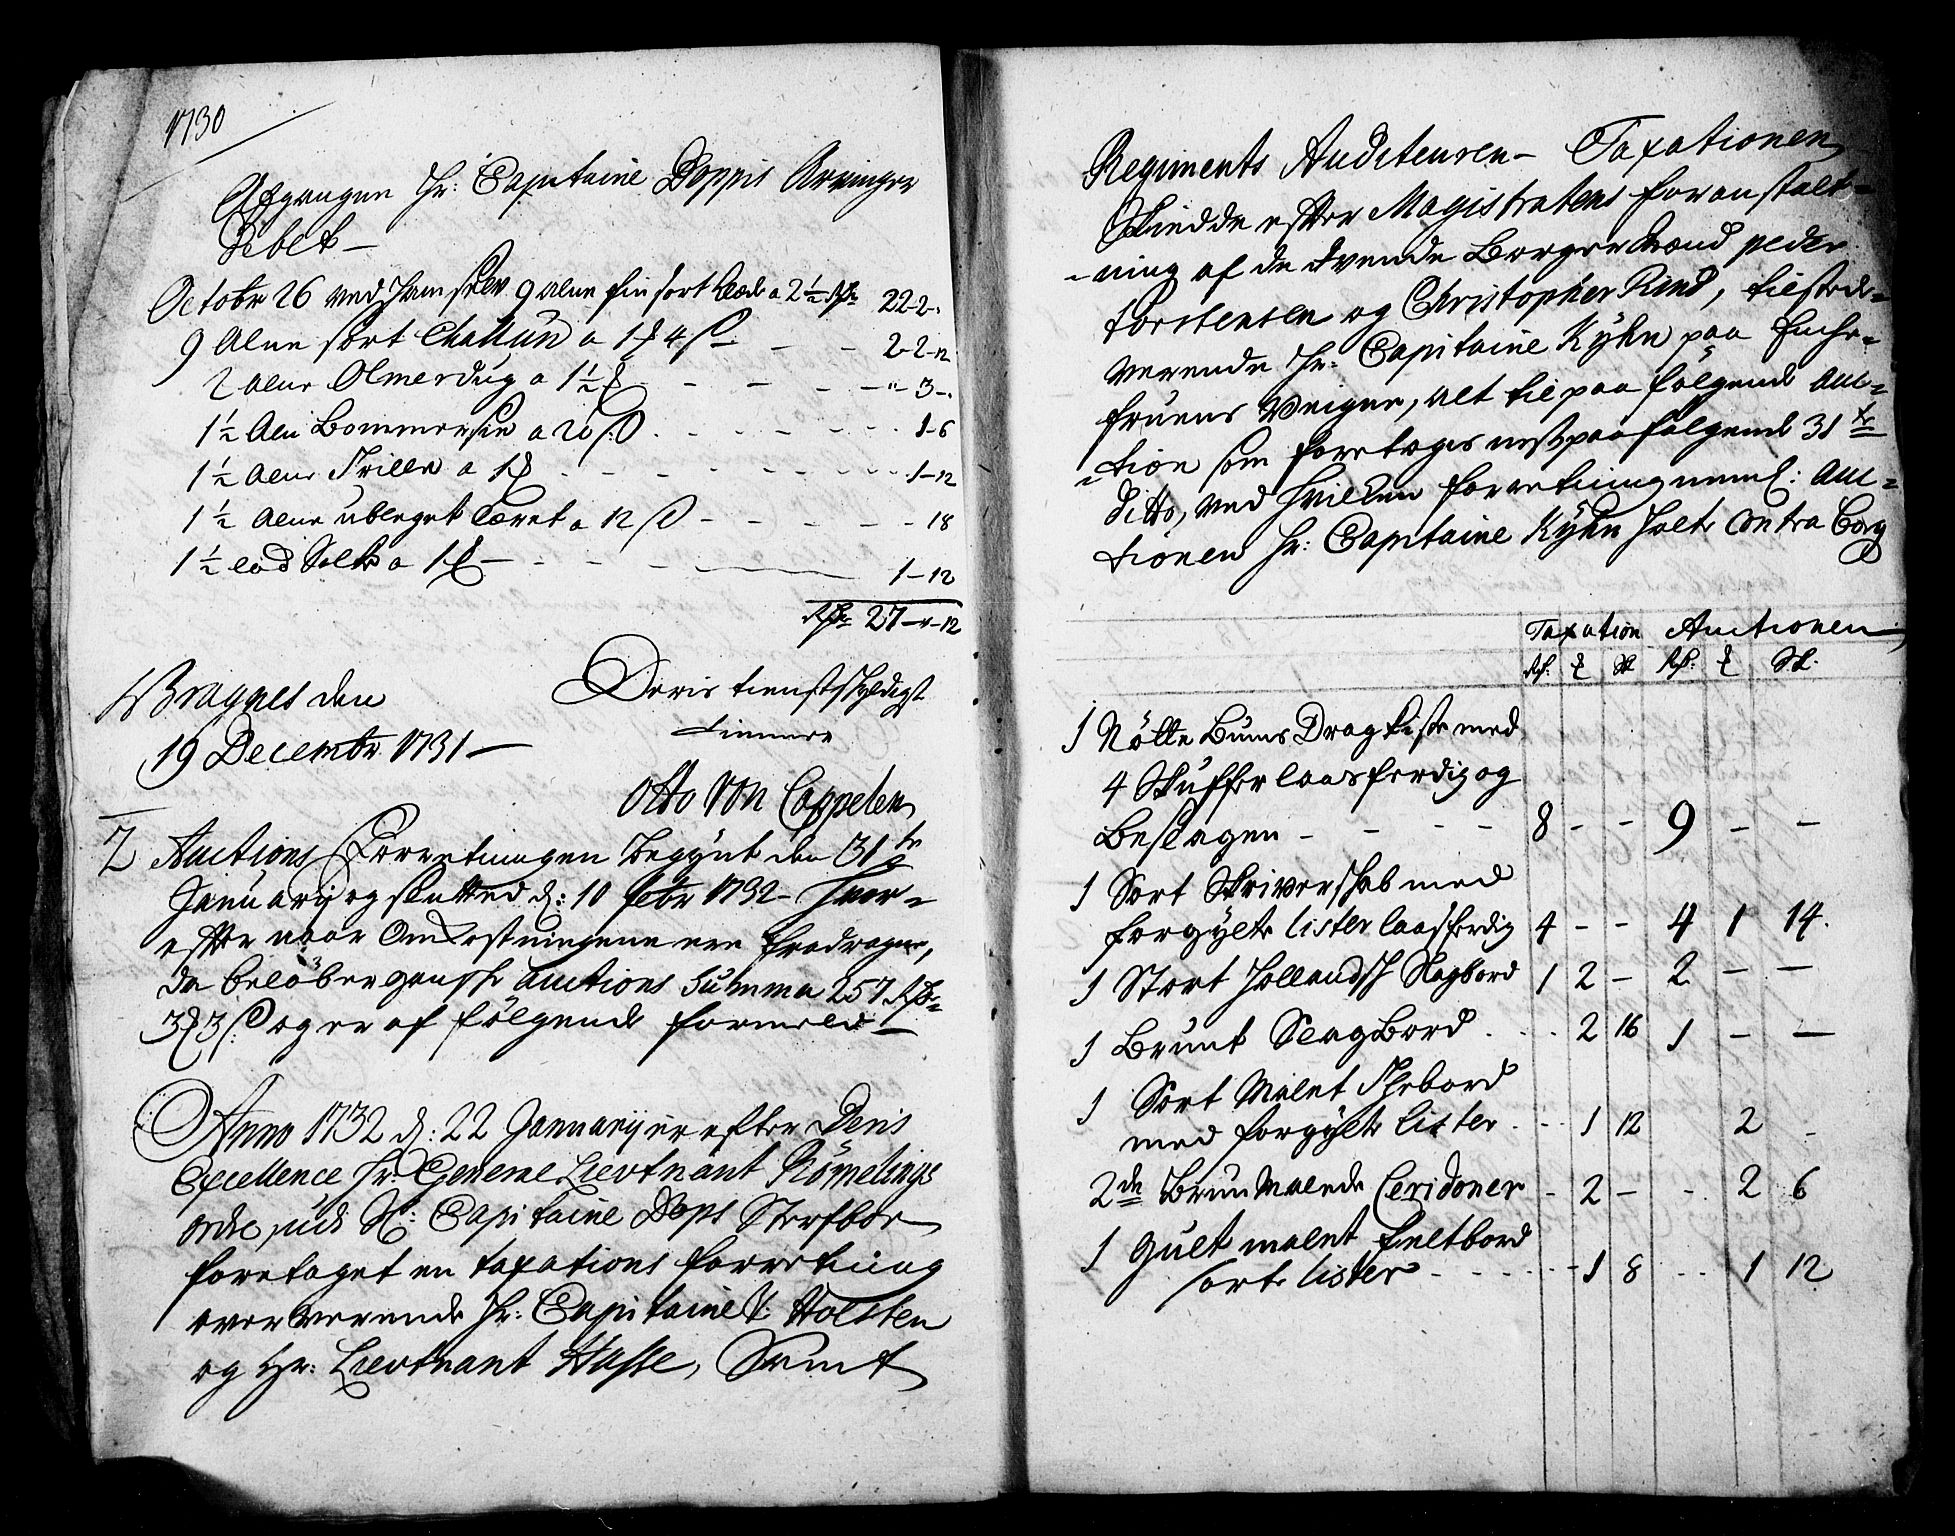 1730
Afgangen Hr: Capitaine Doppis Arvinger
Debet —
Octobr 26 ved ham selv 9 alne fin sort klæde a 2½ Rdr 22-2-
9 Alne sort Challun a 1 ꝛ 4 ß — — 2-2-12
2 alne Olmerdug a 1½ ꝛ — — — — " 3-.
1½ Alen Bommersin a 20 ß . . . . 1-6
1½ Alne Trille a 1 ꝛ . . . . 1-12
1½ Alne ubleget Lærret a 12 ß — — — — 18
1½ lod Silke a 1 ꝛ — — — 1-12
Rdr 27-"-12
Bragnes den
19 Decembr 1731 —
Deris tienstskyldigst
tiennere
Otto Von Cappelen
2 Auctions Forretningen Begynt den 31te
Januarij og slutted d: 10 febr 1732 — hvor-
efter naar Omkostningerne ere fradragne,
da beløber gansche auctions Summa 257 Rdr
3 ꝛ 3 ß og er af følgende formeld —
Anno 1732 d: 22 Januarij er efter Deris
Excellence Hr: General Lieutnant Römelings
ordre, udi Sl: Capitaine Dops Sterfboe
foretaget en taxations forretning
overværende Hr: Capitaine V: Holsten
og Hr: Lieutnant Hasse, Samt
Regiments Auditeuren — Taxationen
Skiedde efter Magistratens foranstalt-
-ning af de tvende Borger Mænd peder
torstensen og Christopher Rind, tilstede-
værende Hr: Capitaine Kyhn paa Enche-
fruens Veigne, alt til paafølgende Auc-
-tion som foretages nestpaafølgende 31te
ditto, ved hvilken forretning neml: Auc-
tionen Hr: Capitaine Kyhn holte Contra Bog
Taxation Auctionen
Rdr: ꝛ Sk Rdr: ꝛ Sk.
1 Nötte Bums Dragkiste med
4 Skuffer laasferdig og
Beslagen — — — — 8 — — 9 — —
1 Sort Skriverskab med
forgylte lister laasferdig 4 — — 4 1 14.
1 Stort Hollandsk Slagbord 1 2 — 2 — —
1 Brunt SlagBord . . . 2 16 1 — —
1 Sort Malet Thebord
med forgylte Lister . . . 1 12 2 -
2de Brun Malede Ceridoner - 2 — . . 2 6
1 Gult malet feltbord
sorte lister - - - - - 1 8 . . 1 12